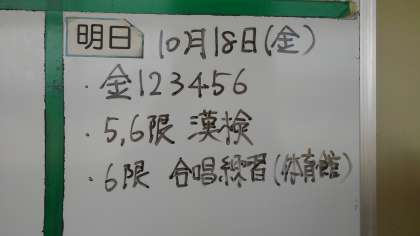 明日 10月18日(金)
・金123456
・5,6限 漢検
・6限 合唱練習(体育館)